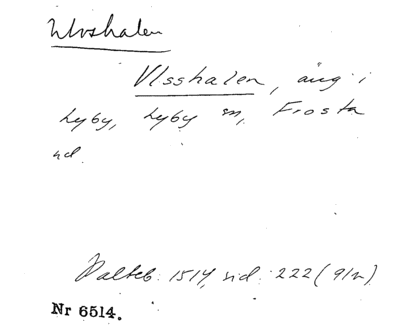 Ulvshalen
Vlsshalen, äng i
Lyby, Lyby sn, Frosta
hd.
Palteb. 1514, sid. 222 (91r)
Nr 6514.